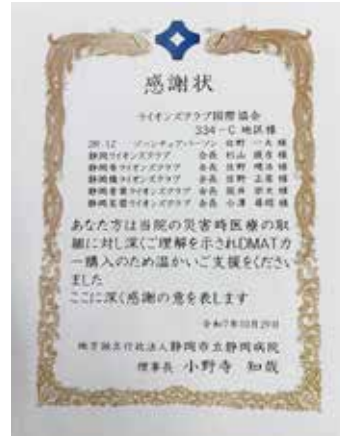 感謝状
ライオンズクラブ国際協会
334-C 地区様
2R 1Z ゾーンチェアパーソン 佐野 一夫 様
静岡ライオンズクラブ 会長 杉山 様
静岡 ライオンズクラブ 会長 佐野 様
静岡 ライオンズクラブ 会長 佐野 様
静岡 ライオンズクラブ 会長 様
静岡 ライオンズクラブ 会長 小澤 様
あなた方は当院の災害時医療の取
組に対し深くご理解を示されDMATカ
ー購入のため温かいご支援をください
ました
ここに深く感謝の意を表します
令和7年10月29日
地方独立行政法人静岡市立静岡病院
理事長 小野寺 知哉